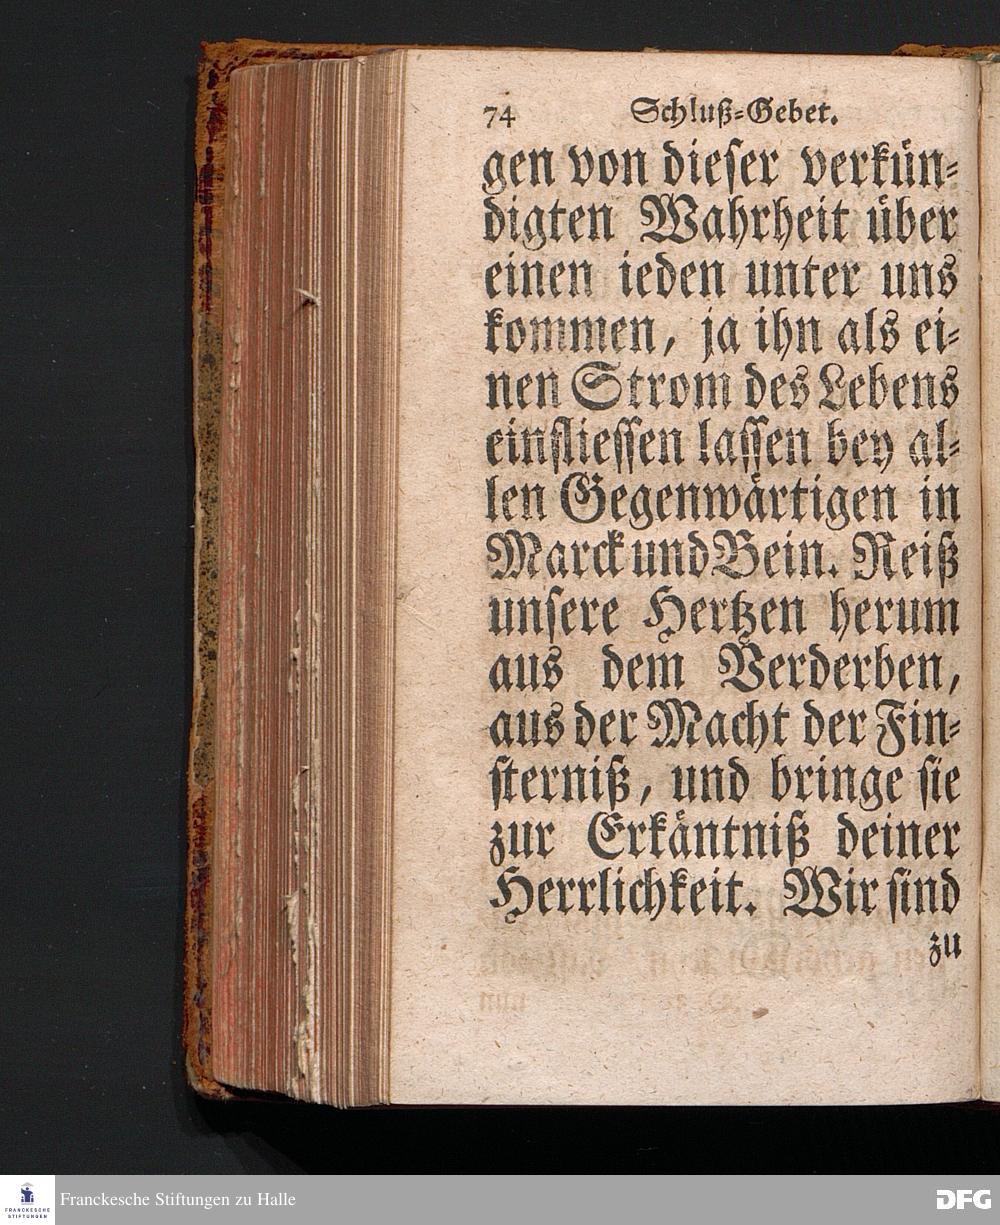 74 Schluß-Gebet.
gen von dieser verkün-
digten Wahrheit über
einen ieden unter uns
kommen, ja ihn als ei-
nen Strom des Lebens
einfliessen lassen bey al-
len Gegenwärtigen in
Marck und Bein. Reiß
unsere Hertzen herum
aus dem Verderben,
aus der Macht der Fin-
sterniß, und bringe sie
zur Erkäntniß deiner
Herrlichkeit. Wir sind
zu
FRANCKESCHE
STIFTUNGEN
Franckesche Stiftungen zu Halle
DFG